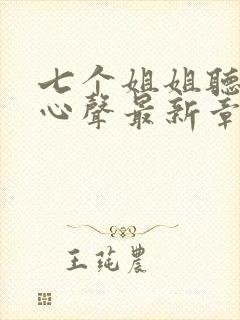 七个姐姐聽
心聲最新章
王莼農